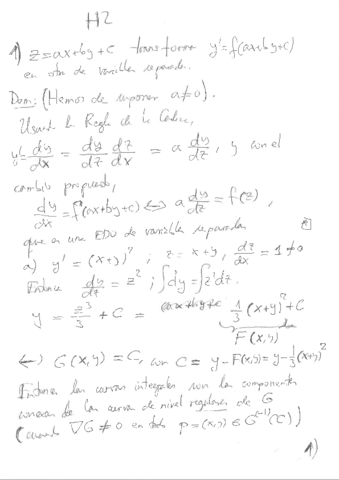 H2
1) z=ax+by+c transforma y'=f(ax+by+c)
en otra de variables separadas.
Dem: (Hemos de suponer a≠0).
Usando la Regla de la Cadena,
y'=dy/dx = dy/dz dz/dx = a dy/dz, y con el
cambio propuesto,
dy/dx = f(ax+by+c) <=> a dy/dz = f(z),
que es una EDO de variables separadas
a) y' = (x+y)²; z = x+y, dz/dx = 1 ≠ 0
Entonces dy/dz = z²; ∫dy = ∫z²dz.
y = z³/3 + C = 1/3 (x+y)² + C
F(x,y)
<=> G(x,y) = C, con C = y-F(x,y) = y-1/3(x+y)²
Entonces las curvas integrales son las componentes
conexas de las curvas de nivel regulares de G
(cuando ∇G ≠ 0 en todo p=(x,y) ∈ G^(-1)(C))
1)